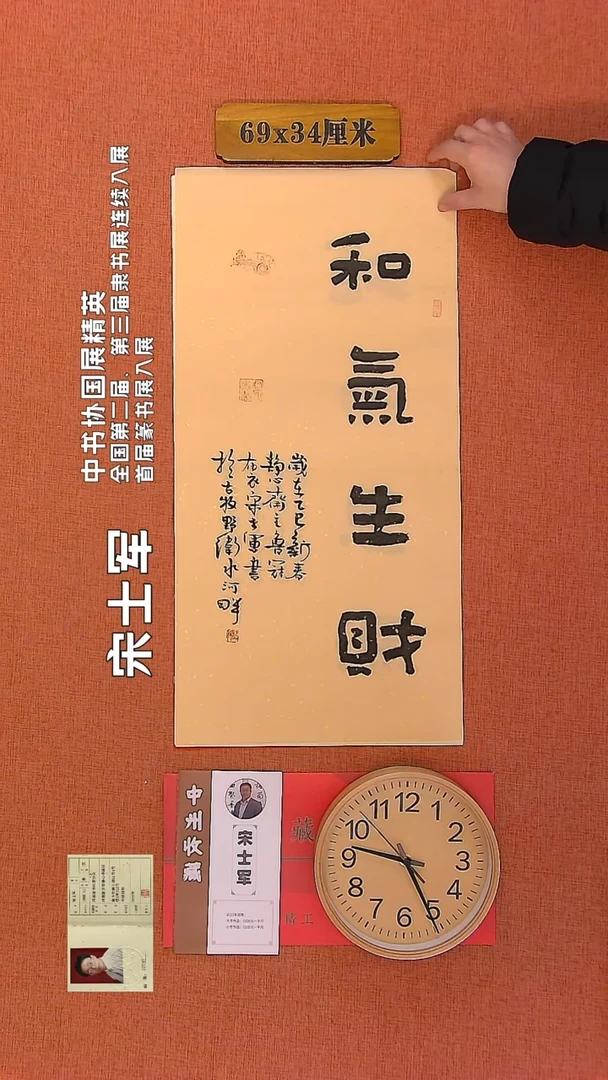 69x34厘米
和氣生財
歲在乙巳新春
靜心齋主魯冠
布衣宋士軍書
於古牧野衛水河畔
中书协国展精英
全国第二届、第三届隶书展连续入展
首届篆书展入展
宋士军
宋士军
藏
精工
12
1
2
3
4
5
6
7
8
9
10
11